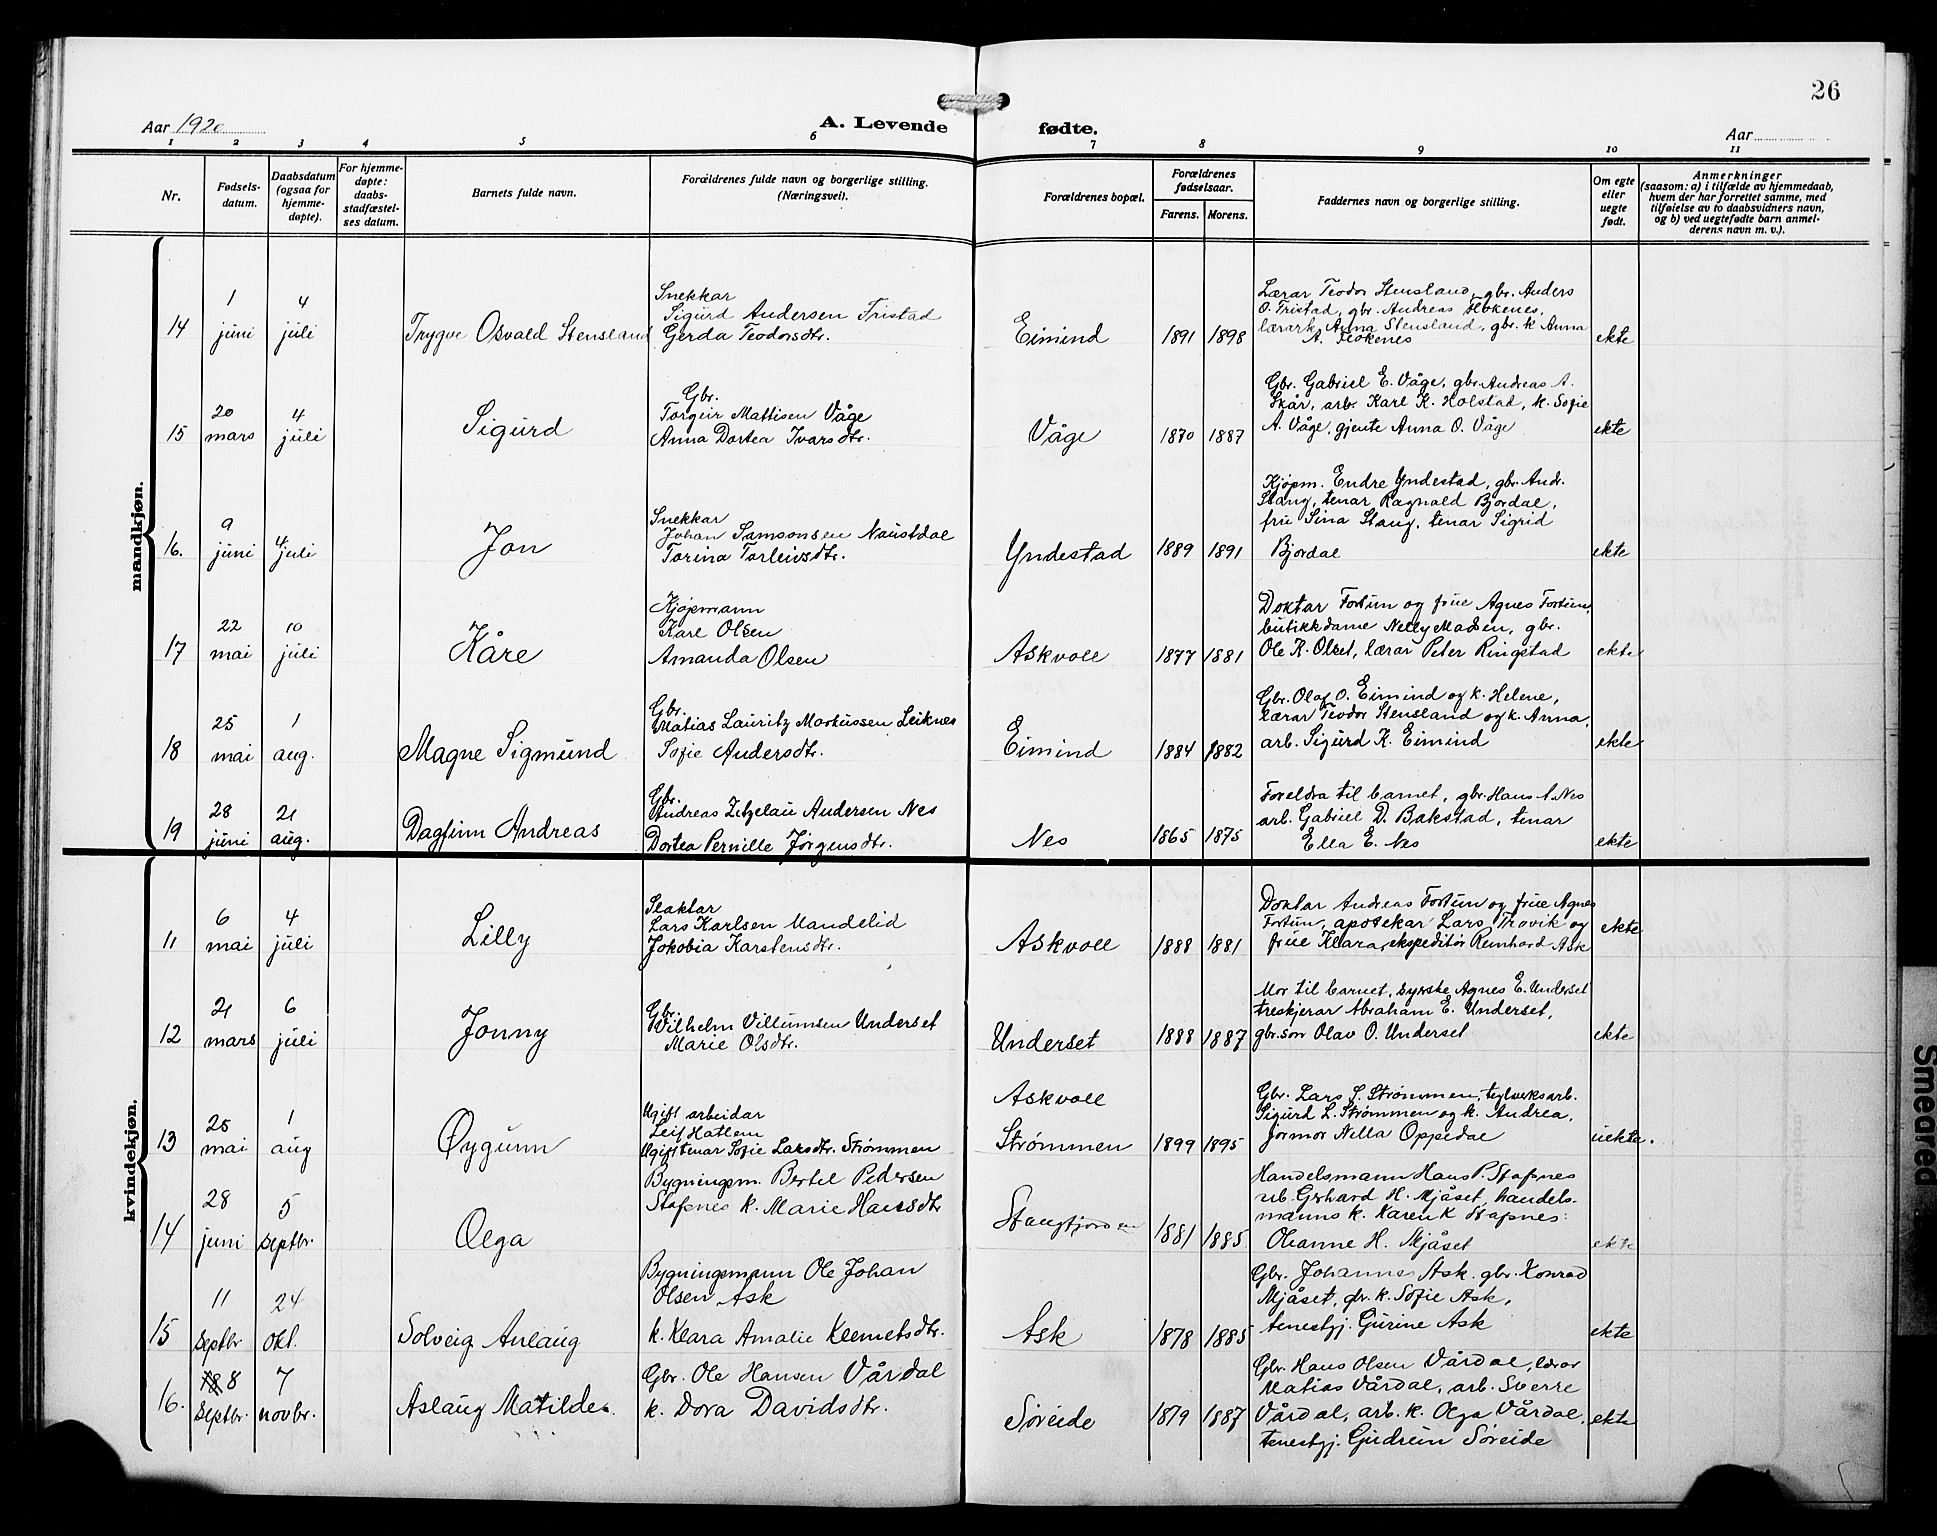 26
Aar 1920
A. Levende fødte.
Aar
1 2 3 4 5 6 7 8 9 10 11
Nr.
Fødsels-
datum.
Daabsdatum
(ogsaa for
hjemme-
døpte).
For hjemme-
døpte:
daabs-
stadfæstel-
ses datum.
Barnets fulde navn.
Forældrenes fulde navn og borgerlige stilling.
(Næringsvei).
Forældrenes bopæl.
Forældrenes
fødselsaar.
Farens. Morens.
Faddernes navn og borgerlige stilling.
Om egte
eller
uegte
født.
Anmerkninger
(saasom: a) i tilfælde av hjemmedaab,
hvem der har forrettet samme, med
tilføielse av to daabsvidners navn,
og b) ved uegtefødte barn anmel-
derens navn m. v.).
mandkjøn.
14
1
juni
4
juli
Trygve Osvald Stensland
Snekkar
Sigurd Andersen Tristad
Gerda Teodorsdtr.
Eimind
1891 1898
Lærar Teodor Stensland, gbr. Anders
O. Tristad, gbr. Andreas Flokenes,
lærark. Anna Stensland, gbr. k Anna
A. Flokenes
ekte
15
20
mars
4
juli
Sigurd
Gbr.
Torgeir Mattisen Våge
Anna Dortea Ivarsdtr.
Våge
1870 1887
Gbr. Gabriel E. Våge, gbr Andreas A.
Skår, arb. Karl K. Holstad, k. Sofie
A. Våge, gjente Anna O. Våge
ekte
16.
9
juni
4
juli
Jon
Snekkar
Johan Samsonsen Naustdal
Torina Torleivsdtr.
Yndestad
1889 1891
Kjøpm. Endre Yndestad, gbr. Andr.
Stang, tenar Ragnald Bjordal,
fru Sina Stang, tenar Sigrid
Bjordal
ekte
17
22
mai
10
juli
Kåre
Kjøpmann
Karl Olsen
Amanda Olsen
Askvoll
1877 1881
Doktar Fortun og frue Agnes Fortun,
butikkdame Nelly Madsen, gbr.
Ole K. Olset, lærar Peter Ringstad
ekte
18
25
mai
1
aug.
Magne Sigmund
Gbr.
Matias Lauritz Markussen Leiknes
Sofie Andersdtr.
Eimind
1884 1882
Gbr. Olaf O. Eimind og k. Helene,
lærar Teodor Stensland og k. Anna,
arb. Sigurd K. Eimind
ekte
19
28
juni
21
aug.
Dagfinn Andreas
Gbr.
Andreas Andersen Nes
Dortea Pernille Jørgensdtr.
Nes
1865 1875
Foreldra til barnet, gbr. Hans A Nes
arb. Gabriel D. Bakstad, tenar
Ella E. Nes
ekte
kvindekjøn.
11
6
mai
4
juli
Lilly
Slaktar
Lars Karlsen Mandelid
Jokobia Karstensdtr.
Askvoll
1888 1881
Doktar Andreas Fortun og frue Agnes
Fortun, apotekar Lars Trovik og
frue Klara, ekspeditør Reinhard Ask
ekte
12
21
mars
6
juli
Jonny
Gbr.
Vilhelm Villumsen Underset
Marie Olsdtr.
Underset
1888 1887
Mor til barnet, syrske Agnes E. Underset
treskjerar Abraham E. Underset,
gbr.son Olav O. Underset
ekte
13
25
mai
1
aug
Øygunn
Ugift arbeidar
Leif Hatlem
Ugift tenar Sofie Larsdtr. Strømmen
Askvoll
Strømmen
1899 1895
Gbr. Lars S. Strømmen, teglverksarb.
Sigurd L. Strømmen og k. Andrea,
jormor Nilla Oppedal
uekte.
14
28
juni
5
septbr.
Olga
Bygningsm. Bertel Pedersen
Stafnes k. Marie Hansdtr
Stangfjorden
1881 1885
Handelsmann Hans P. Stafnes
ub. Gerhard H. Mjåset, handels-
manns k. Karen K Stafnes:
Ohanne H. Mjåset
ekte
15
11
septbr
24
okt.
Solveig Anlaug
Bygningsmann Ole Johan
Olsen Ask
k. Klara Amalie Klemetsdtr.
Ask
1878 1885
Gbr. Johannes Ask. gbr. Konrad
Mjåset, gbr. k. Sofie Ask,
tenestgj. Gurine Ask
ekte
16.
8
septbr.
7
novbr.
Aslaug Matilde.
Gbr. Ole Hansen Vårdal
k. Dora Davidsdtr.
Søreide
1879 1887
Gbr. Hans Olsen Vårdal, lærar
Matias Vårdal, arb. Sverre
Vårdal, arb. k. Olga Vårdal,
tenestgj. Gudrun Søreide
ekte
Smeared